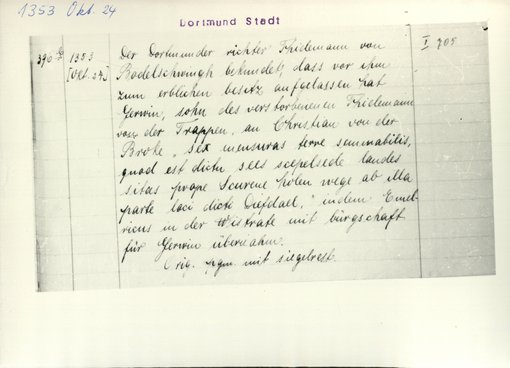 1353 Okt. 24
Dortmund Stadt
1353
[Okt. 24]
Der Dortmunder richter Thidemann von
Bodelschwingh bekundet, dass vor ihm
zum erblichen besitz aufgelassen hat
Gerwin, sohn des verstorbenen Thidemann
von der Trappen, an Christian von der
Broke, "sex mensuras terre seminabilis,
quod est dictu sees scepelsede landes
sitas prope holen wege ab illa
parte loci dicte Diefdael," indem Emel-
ricus in der Wistrate mit bürgschaft
für Gerwin übernahm.
Orig. pgm. mit siegelrest.
I 705